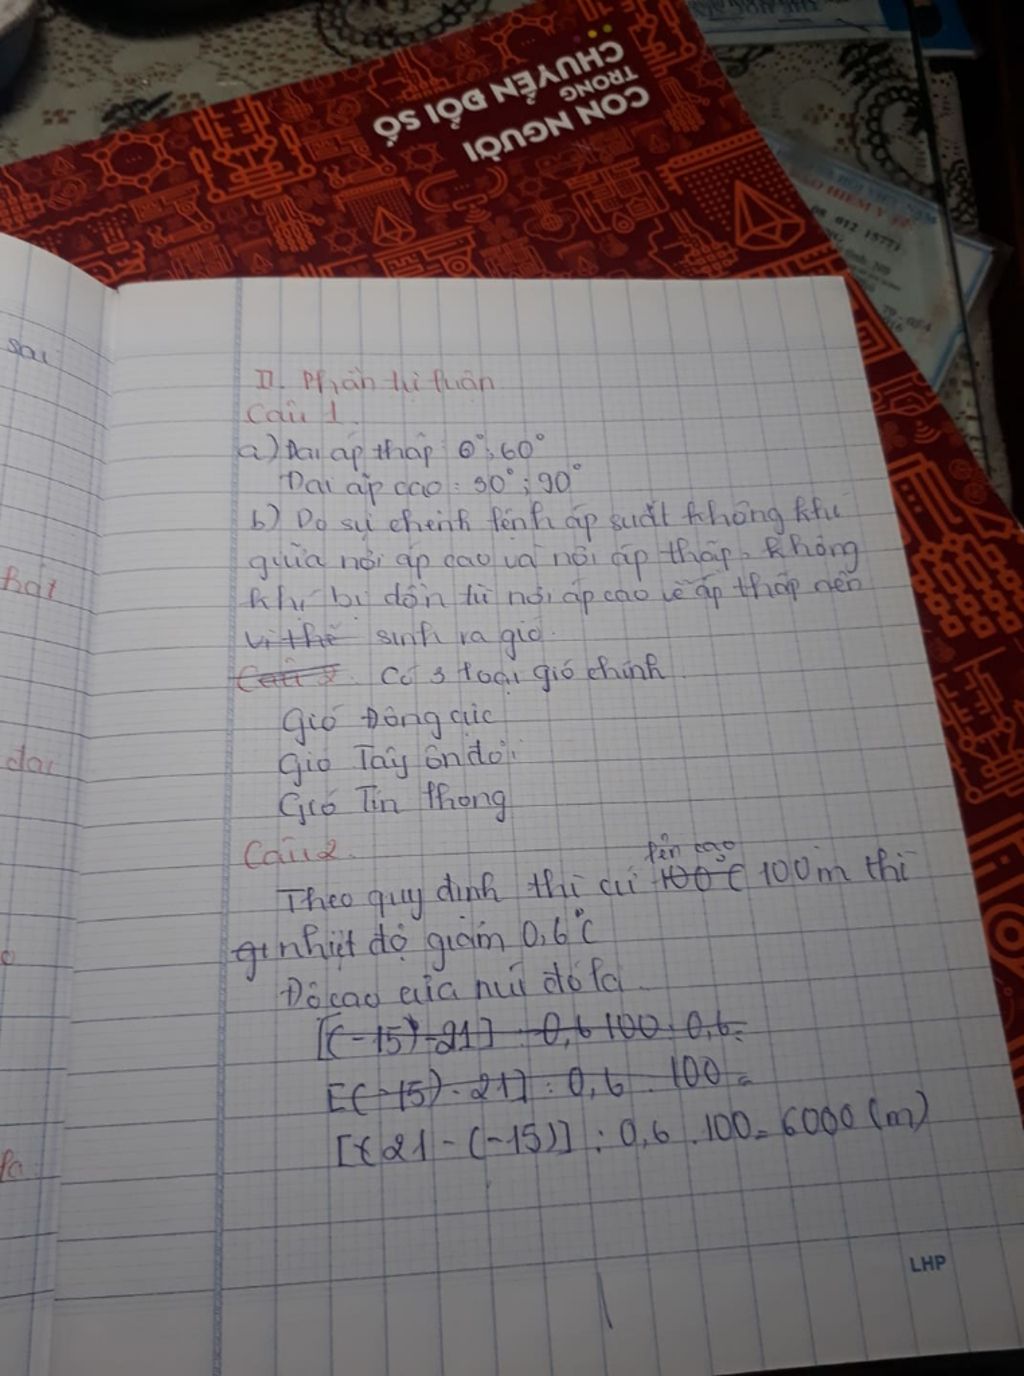 CON NGƯỜI
TRONG
CHUYỂN ĐỔI SỐ
08 012 15771
sau
hạt
dai
II. Phần tự luận
Câu 1
a) Đai áp thấp 0°; 60°
Đai áp cao: 30°; 90°
b) Do sự chênh lệnh áp suất không khí
giữa nơi áp cao và nơi áp thấp, không
khí bị dồn từ nơi áp cao về áp thấp nên
vì thế sinh ra gió.
Câu 2. Có 3 loại gió chính
Gió Đông cực
Gió Tây ôn đới
Gió Tín Phong
Câu 2.
lên cao
Theo quy định thì cứ 100°C 100m thì
gi nhiệt độ giảm 0,6°C
Độ cao của núi đó là
[(-15)-21] : 0,6 100 : 0,6=
[(-15)-21] : 0,6 . 100 =
[(21-(-15)] : 0,6 . 100 = 6000 (m)
LHP